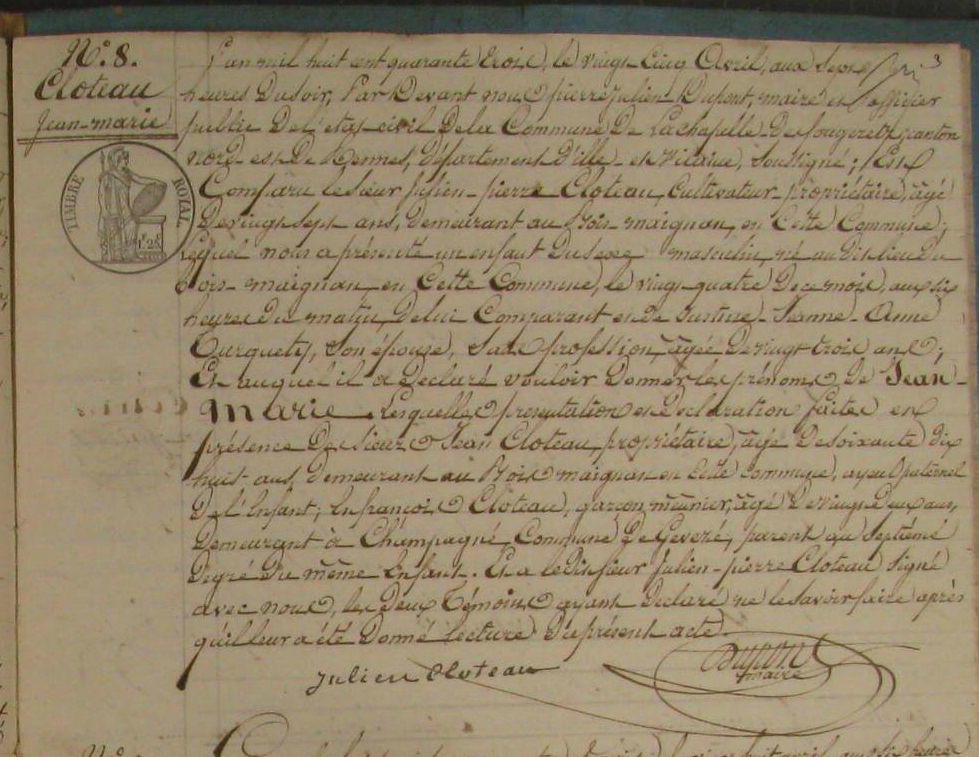 N.º 8.
Cloteau
Jean-marie
TIMBRE ROYAL
1.25
3
L'an mil huit cent quarante trois, le vingt cinq Avril, aux Sept
heures Du soir, Par Devant nous pierre julien Dupont, maire et officier
public De l'état civil De la Commune De Lachapelle-Des fougeretz, canton
nord-est De Rennes, Département D'ille-et Vilaine, soussigné; Est
Comparu le sieur julien-pierre Cloteau, Cultivateur-propriétaire, âgé
De vingt sept ans, Demeurant au Bois-maignan, en Cette Commune;
Lequel nous a présenté un enfant Du sexe masculin, né au Dit lieu Du
Bois-maignan en Cette Commune, le vingt quatre De ce mois, aux six
heures Du matin, De lui Comparant et De Justine-Jeanne-Anne
Turquety, Son épouse, Sans profession, âgée De vingt trois ans;
Et auquel il a Déclaré vouloir Donner les prénoms De Jean-
marie. Lesquelles présentation et Déclaration faites en
présence Des sieurs Jean Cloteau, propriétaire, âgé De soixante Dix
huit ans, Demeurant au Bois maignan en Cette Commune, ayeul paternel
De l'Enfant; Et françois Cloteau, garçon meunier, âgé De vingt Deux ans,
Demeurant à Champagné, Commune De Gevezé, parent au Septième
Degré Du même Enfant. Et a le Dit sieur Julien-pierre Cloteau Signé
avec nous, les Deux Témoins ayant Déclaré ne le savoir faire après
qu'il leur a été Donné lecture Du présent acte.
Julien Cloteau
Dupont
maire
N.º